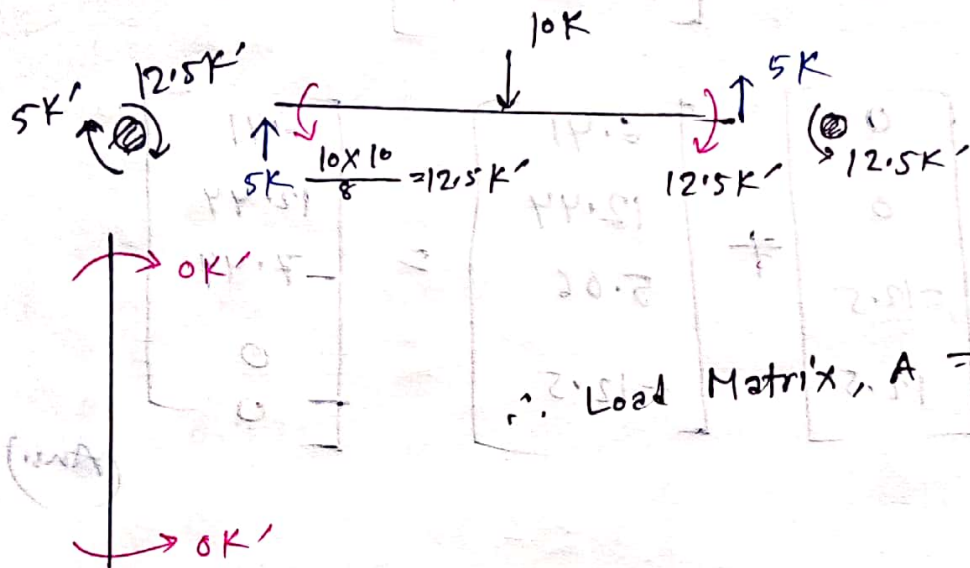 10K
5K
12.5K′
5K′
5K
10×10/8 = 12.5K′
12.5K′
12.5K′
0K′
∴ Load Matrix, A =
0K′